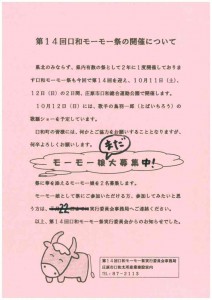 第14回口和モーモー祭の開催について
県北のみならず、県内有数の祭として2年に1度開催しておりま
す口和モーモー祭も今回で第14回を迎え、10月11日(土)、
12日(日)の2日間、庄原市口和総合運動公園で開催します。
10月12日(日)には、歌手の鳥羽一郎(とばいちろう)の
歌謡ショーを予定しています。
口和町の皆様には、何かとご協力をお願いすることとなりますが、
何卒よろしくお願いします。
まだ
モーモー娘大募集中!
祭に華を添えるモーモー娘を2名募集します。
モーモー娘として祭にご参加いただける方、参加してみたいと思
う方は、
22
実行委員会事務局へご連絡ください。
以上、第14回口和モーモー祭実行委員会からのお知らせでした。
第14回口和モーモー祭実行委員会事務局
TEL:87-2113